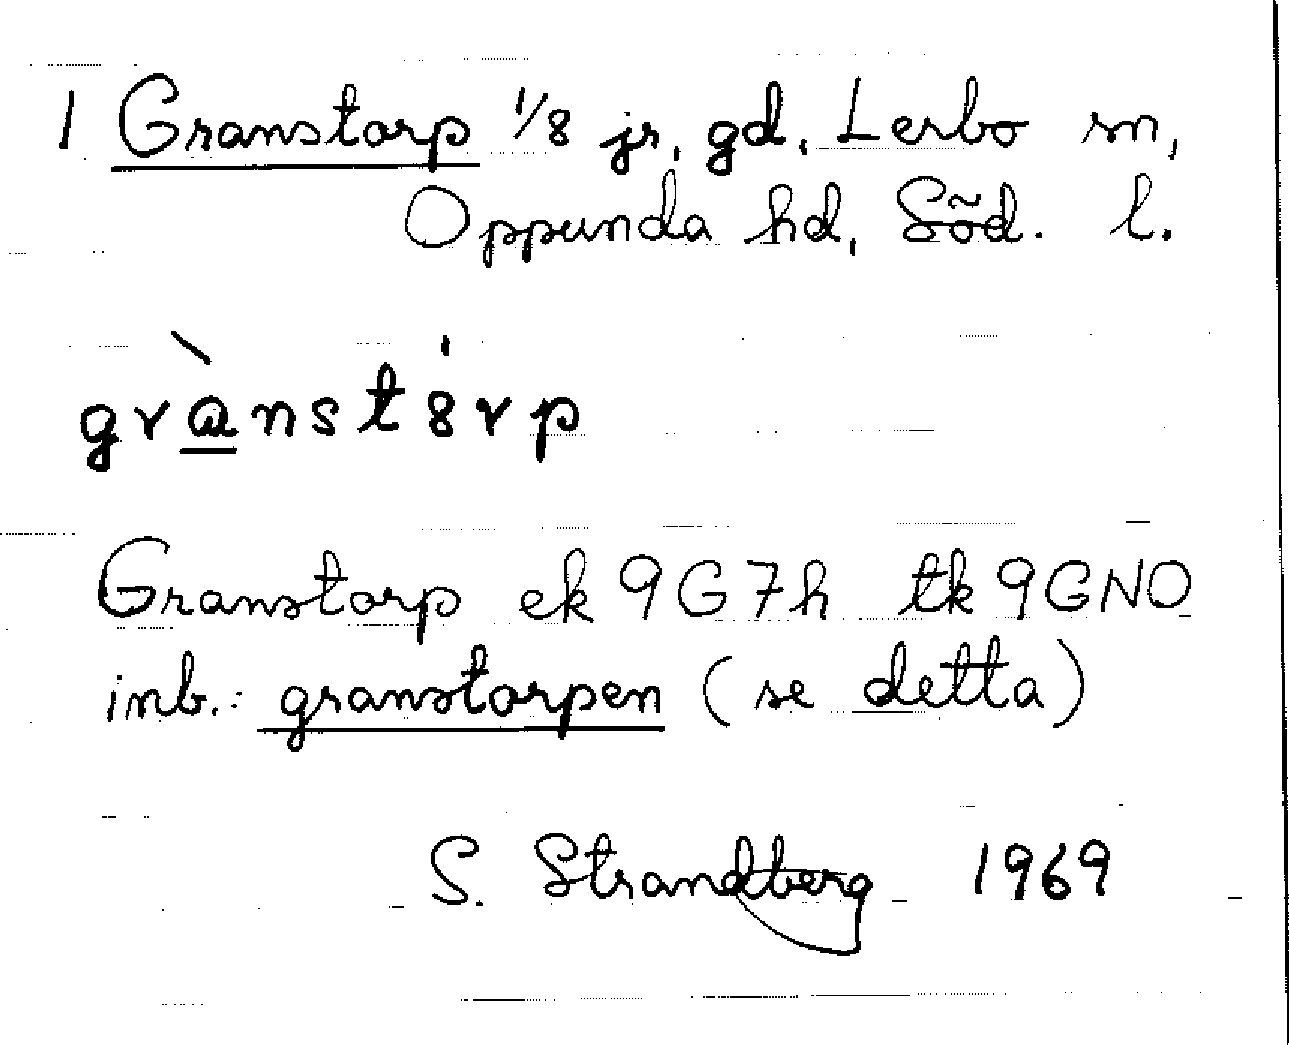 1 Granstorp 1/8 jr, gd, Lerbo sn,
Oppunda hd, Söd. l.
grànst8́rp
Granstorp ek 9G7h tk 9GNO
inb.: granstorpen (se detta)
S. Strandberg 1969